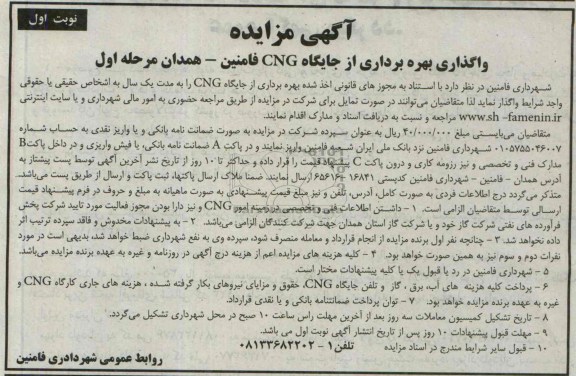 نوبت اول
آگهی مزایده
واگذاری بهره برداری از جایگاه CNG فامنین – همدان مرحله اول
شهرداری فامنین در نظر دارد با استناد به مجوز های قانونی اخذ شده بهره برداری از جایگاه CNG را به مدت یک سال به اشخاص حقیقی یا حقوقی
واجد شرایط واگذار نماید لذا متقاضیان می‌توانند در صورت تمایل برای شرکت در مزایده از طریق مراجعه حضوری به امور مالی شهرداری و یا سایت اینترنتی
www.sh-famenin.ir مراجعه و نسبت به دریافت اسناد و مدارک اقدام نمایند.
متقاضیان می‌بایستی مبلغ ۴۰/۰۰۰/۰۰۰ ریال به عنوان سپرده شرکت در مزایده به صورت ضمانت نامه بانکی و یا واریز نقدی به حساب شماره
۰۱۰۵۷۵۵۰۴۶۰۰۷ شهرداری فامنین نزد بانک ملی ایران شعبه فامنین واریز نمایند و در پاکت A ضمانت نامه بانکی، یا فیش واریزی و در داخل پاکت B
مدارک فنی و تخصصی و نیز رزومه کاری و درون پاکت C پیشنهاد قیمت را قرار داده و حداکثر تا ۱۰ روز از تاریخ نشر آخرین آگهی توسط پست پیشتاز به
آدرس همدان - فامنین - شهرداری فامنین کدپستی ۱۶۸۴۱-۶۵۶۱۶ ارسال نمایند. ضمنا ملاک ارسال پاکتها، ثبت پاکت و ارسال از طریق پست می‌باشد.
متذکر می‌گردد درج اطلاعات فردی به صورت کامل، آدرس، تلفن و نیز مبلغ قیمت پیشنهادی به صورت ماهیانه به مبلغ و حروف در فرم پیشنهاد قیمت
ارسالی توسط متقاضیان الزامی است. ۱ - داشتن اطلاعات فنی و تخصصی در زمینه امور CNG و نیز دارا بودن مجوز فعالیت مورد تایید شرکت پخش
فرآورده های نفتی شرکت گاز خود و یا شرکت گاز استان همدان جهت شرکت کنندگان الزامی می‌باشد. ۲ - به پیشنهادات مخدوش و فاقد سپرده ترتیب اثر
داده نخواهد شد. ۳ - چنانچه نفر اول برنده مزایده از انجام قرارداد و معامله منصرف شود، سپرده وی به نفع شهرداری ضبط خواهد شد، بدیهی است در مورد
نفرات دوم و سوم نیز به همین صورت خواهد بود. ۴ - کلیه هزینه های مزایده اعم از هزینه درج آگهی در روزنامه و غیره به عهده برنده مزایده می‌باشد.
۵ - شهرداری فامنین در رد یا قبول یک یا کلیه پیشنهادات مختار است.
۶ - پرداخت کلیه هزینه های آب، برق ، گاز و تلفن جایگاه CNG، حقوق و مزایای نیروهای بکار گرفته شده ، هزینه های جاری کارگاه CNG و
غیره به عهده برنده مزایده خواهد بود. ۷ - توان پرداخت ضمانتنامه بانکی و یا نقدی قرارداد.
۸ - تاریخ تشکیل کمیسیون معاملات سه روز بعد از آخرین مهلت راس ساعت ۱۰ صبح در محل شهرداری تشکیل می‌گردد.
۹ - مهلت قبول پیشنهادات ۱۰ روز پس از تاریخ انتشار آگهی نوبت اول می باشد.
۱۰ - قبول سایر شرایط مندرج در اسناد مزایده تلفن ۱ - ۰۸۱۳۳۶۸۲۲۰۲
روابط عمومی شهردادری فامنین